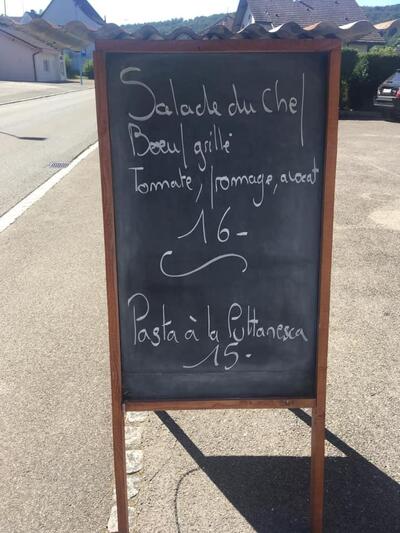 Salade du Chef
Bœuf grillé
Tomate, fromage, avocat
16-
Pasta à la Puttanesca
15.-